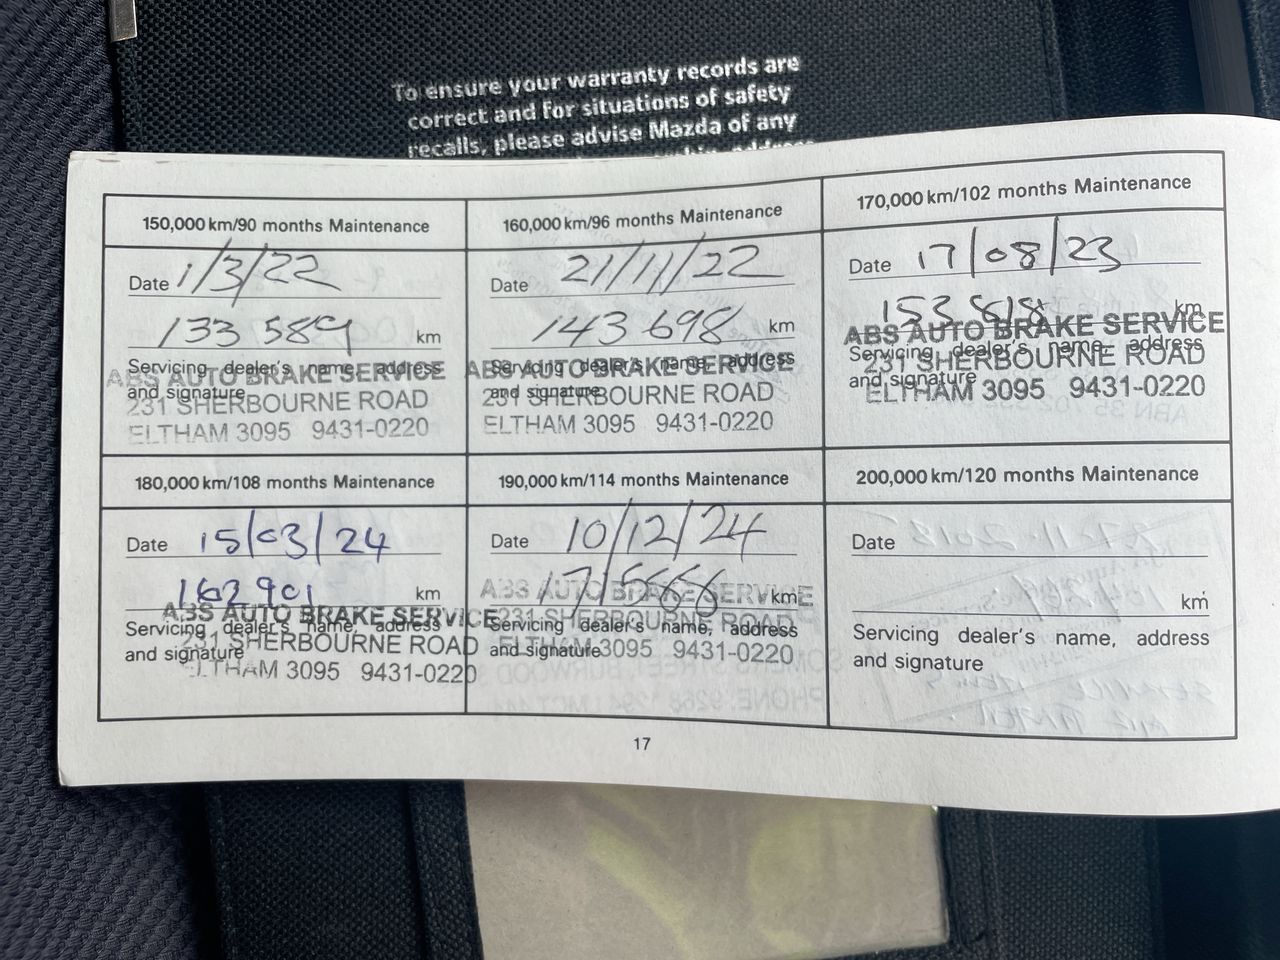 To ensure your warranty records are
correct and for situations of safety
recalls, please advise Mazda of any
150,000 km/90 months Maintenance
Date 1/3/22
133 589 km
Servicing dealer's name, address
and signature
ABS AUTO BRAKE SERVICE
231 SHERBOURNE ROAD
ELTHAM 3095 9431-0220
160,000 km/96 months Maintenance
Date 21/11/22
143 698 km
Servicing dealer's name, address
and signature
ABS AUTO BRAKE SERVICE
231 SHERBOURNE ROAD
ELTHAM 3095 9431-0220
170,000 km/102 months Maintenance
Date 17/08/23
153 818 km
Servicing dealer's name, address
and signature
ABS AUTO BRAKE SERVICE
231 SHERBOURNE ROAD
ELTHAM 3095 9431-0220
180,000 km/108 months Maintenance
Date 15/03/24
162 901 km
Servicing dealer's name, address
and signature
ABS AUTO BRAKE SERVICE
231 SHERBOURNE ROAD
ELTHAM 3095 9431-0220
190,000 km/114 months Maintenance
Date 10/12/24
171566 km
Servicing dealer's name, address
and signature
ABS AUTO BRAKE SERVICE
231 SHERBOURNE ROAD
3095 9431-0220
200,000 km/120 months Maintenance
Date
km
Servicing dealer's name, address
and signature
17